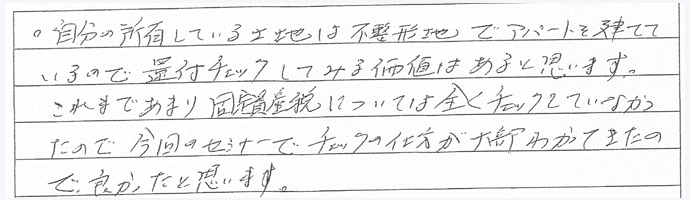 。自分の所有している土地は不整形地でアパートを建てて
いるので還付チェックしてみる価値はあると思います。
これまであまり固定資産税については全くチェックしていなかっ
たので今回のセミナーでチェックの仕方が大部わかってきたの
で良かったと思います。